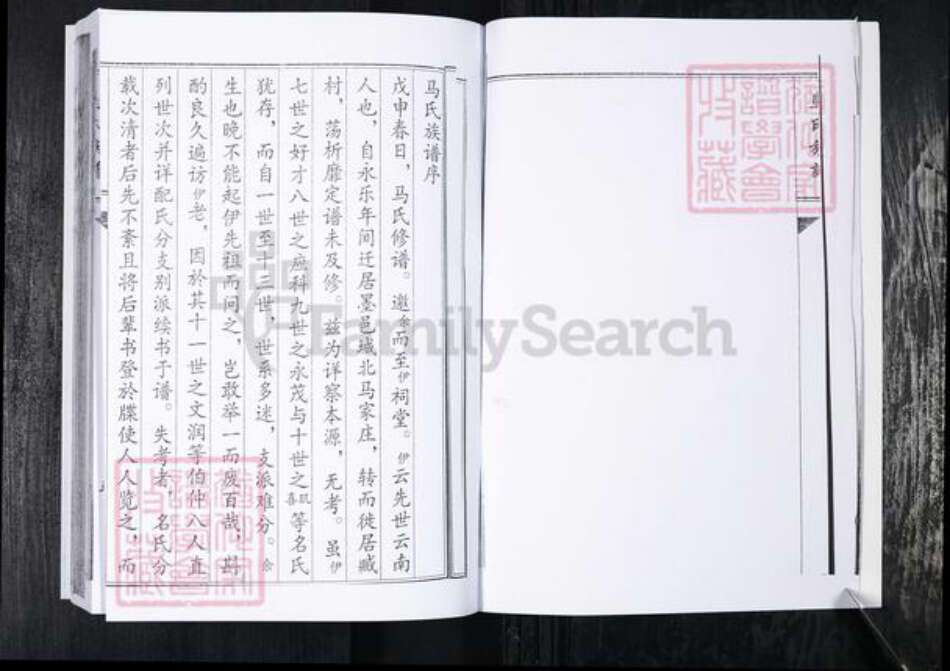 马氏族谱序
戊申春日，马氏修谱。邀余而至伊祠堂。伊云先世云南
人也，自永乐年间迁居墨邑城北马家庄，转而徙居臧
村，荡析靡定谱未及修。兹为详察本源，无考。虽伊
七世之好才八世之庶科九世之永茂与十世之 喜等名氏
犹存，而自一世至十三世，世系多迷，支派难分。余
生也晚不能起伊先祖而问之，岂敢举一而废百哉，斟
酌良久遍访伊老，因於其十一世之文润等伯仲八人直
列世次并详配氏分支别派续书于谱。失考者，名氏分
载次清者后先不紊且将后辈书登於牒使人人览之，而
马氏族谱
譜學會
收藏
FamilySearch